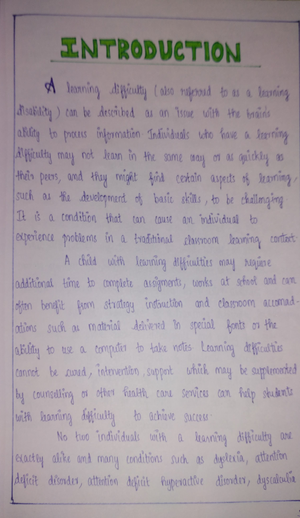 INTRODUCTION
A learning difficulty (also referred to as a learning
disability) can be described as an issue with the brain's
ability to process information. Individuals who have a learning
difficulty may not learn in the same way or as quickly as
their peers, and they might find certain aspects of learning,
such as the development of basic skills, to be challenging.
It is a condition that can cause an individual to
experience problems in a traditional classroom learning context.
A child with learning difficulties may require
additional time to complete assigments, works at school and can
often benefit from strategy instruction and classroom accomad-
ations such as material delivered in special fonts or the
ability to use a computer to take notes. Learning difficulties
cannot be cured, intervention, support which may be supplemented
by counselling or other health care services can help students
with learning difficulty to achieve success.
No two individuals with a learning difficulty are
exactly alike and many conditions such as dyslexia, attention
deficit disorder, attention deficit hyperactive disorder, dyscalculia